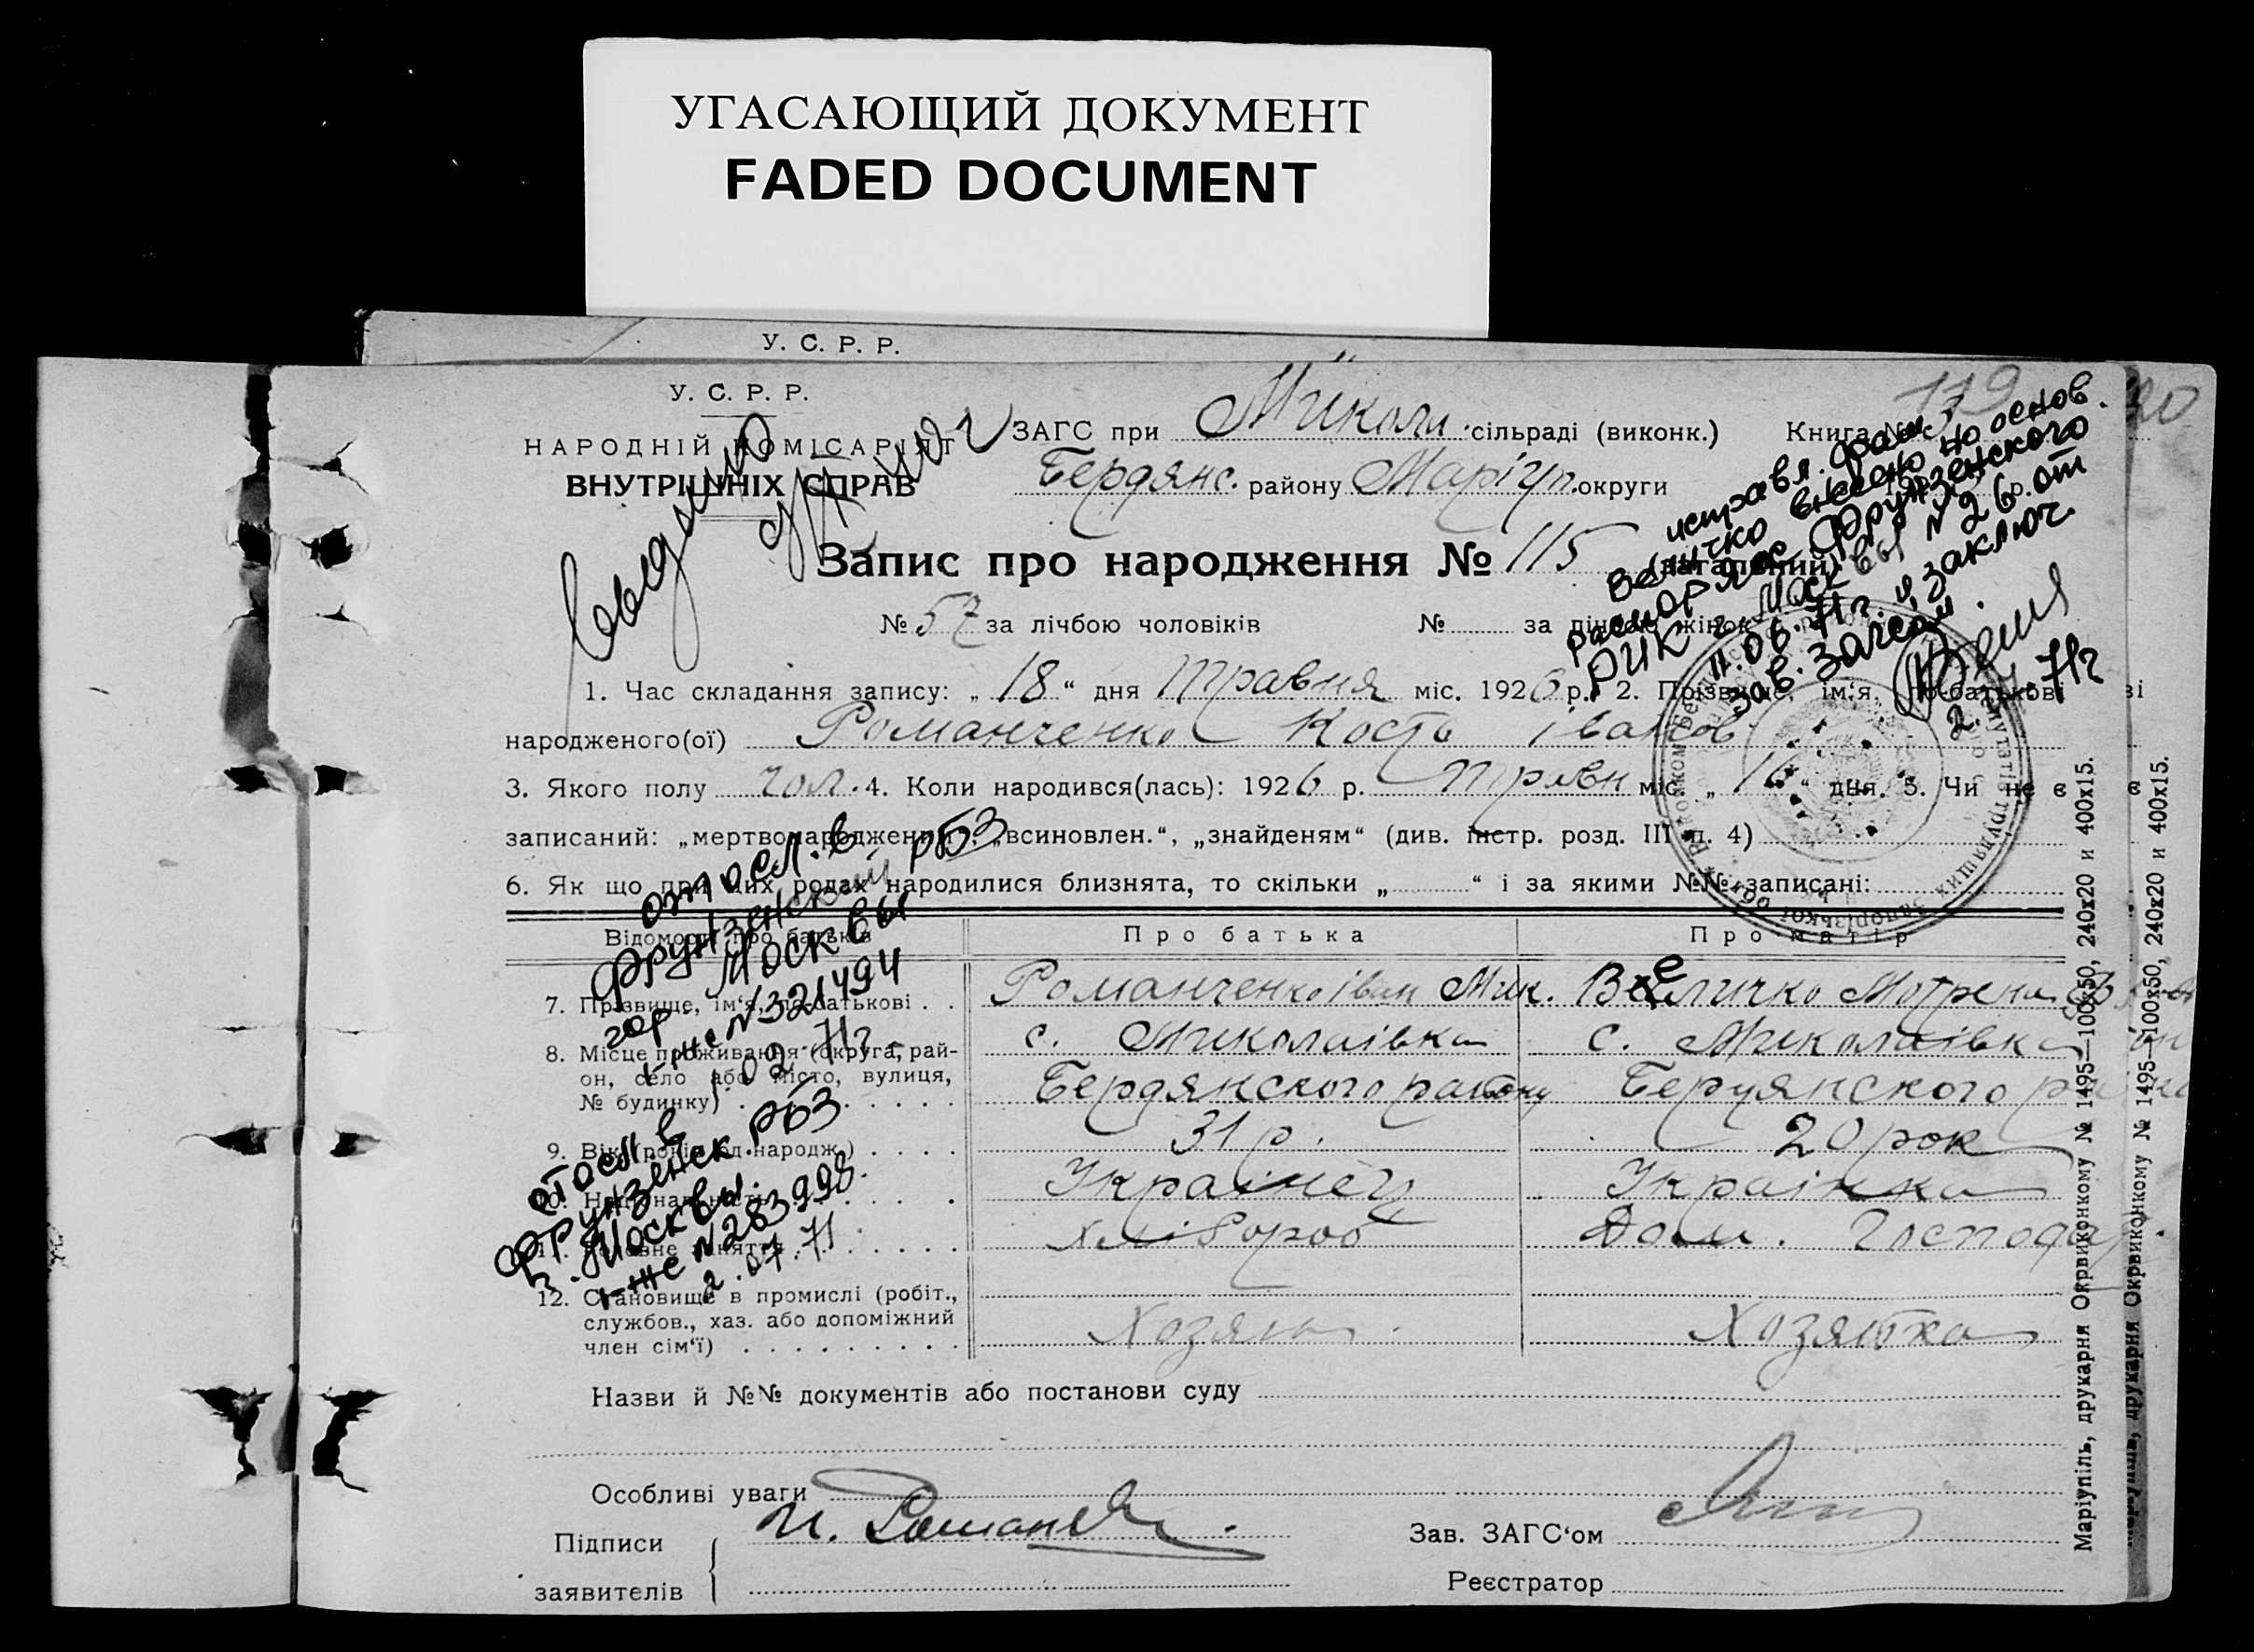 УГАСАЮЩИЙ ДОКУМЕНТ
FADED DOCUMENT
У. С. Р. Р.
У. С. Р. Р.
НАРОДНІЙ КОМІСАРІЯТ
ВНУТРІШНІХ СПРАВ
ЗАГС при Микол. сільраді (виконк.) Книга № 3
119
Бердянс. району Маріуп. округи
Запис про народження № 115 (загальний)
№ 57 за лічбою чоловіків № за лічбою жінок
исправл. фам.
Величко внесено на основ.
распоряж. Фрунзенского
РИК г. Москвы № 26 от
11.06.71 г. и заключ.
зав. загсом.
2. 71г
1. Час складання запису: „18“ дня травня міс. 1926 р. 2. Прізвище, ім‘я, по-батькові
народженого(ої) Романченко Кость Іванов
3. Якого полу чол. 4. Коли народився(лась): 1926 р. травн міс. „16“ дня. 5. Чи не є
записаний: „мертвонароджений“, „всиновлен.“, „знайденям“ (див. інстр. розд. III п. 4)
6. Як що при цих родах народилися близнята, то скільки „ “ і за якими №№ записані:
отосл. в
Фрунзенский РБЗ
гор. Москвы
I-ЖЕ №321494
02 71г
отосл в
Фрунзенск. РБЗ
г. Москвы.
I-ЖЕ №283998
2.07.71
Відомости про батьків Про батька Про матір
7. Прізвище, ім‘я, по-батькові . . Романченко Іван Мик. Величко Мотрена
8. Місце проживання (округа, рай- с. Миколаівка с. Миколаівка
он, село або місто, вулиця, Бердянского району Бердянского
№ будинку)
9. Вік (років од народж.) 31 р. 20 рок
10. Національність Украінец Украінка
11. Головне заняття Хлібороб Дом. Господар.
12. Становище в промислі (робіт.,
службов., хаз. або допоміжний Хозяин. Хозяйка
член сім‘ї)
Назви й №№ документів або постанови суду
Особливі уваги
Підписи
И. Романч
Зав. ЗАГС‘ом
заявителів
Реєстратор
Маріупіль, друкарня Окрвиконкому № 1495—100x50, 240x20 и 400x15.
Окрвиконкому № 1495—100x50, 240x20 и 400x15.